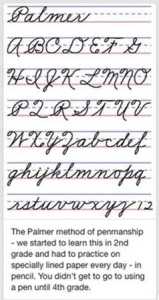 Palmer
ABCDEFG
HIJKLMNO
PQRSTUV
WXYZabcdef
ghijklmnopq
rstuvwxyz12
The Palmer method of penmanship
- we started to learn this in 2nd
grade and had to practice on
specially lined paper every day - in
pencil. You didn't get to go to using
a pen until 4th grade.